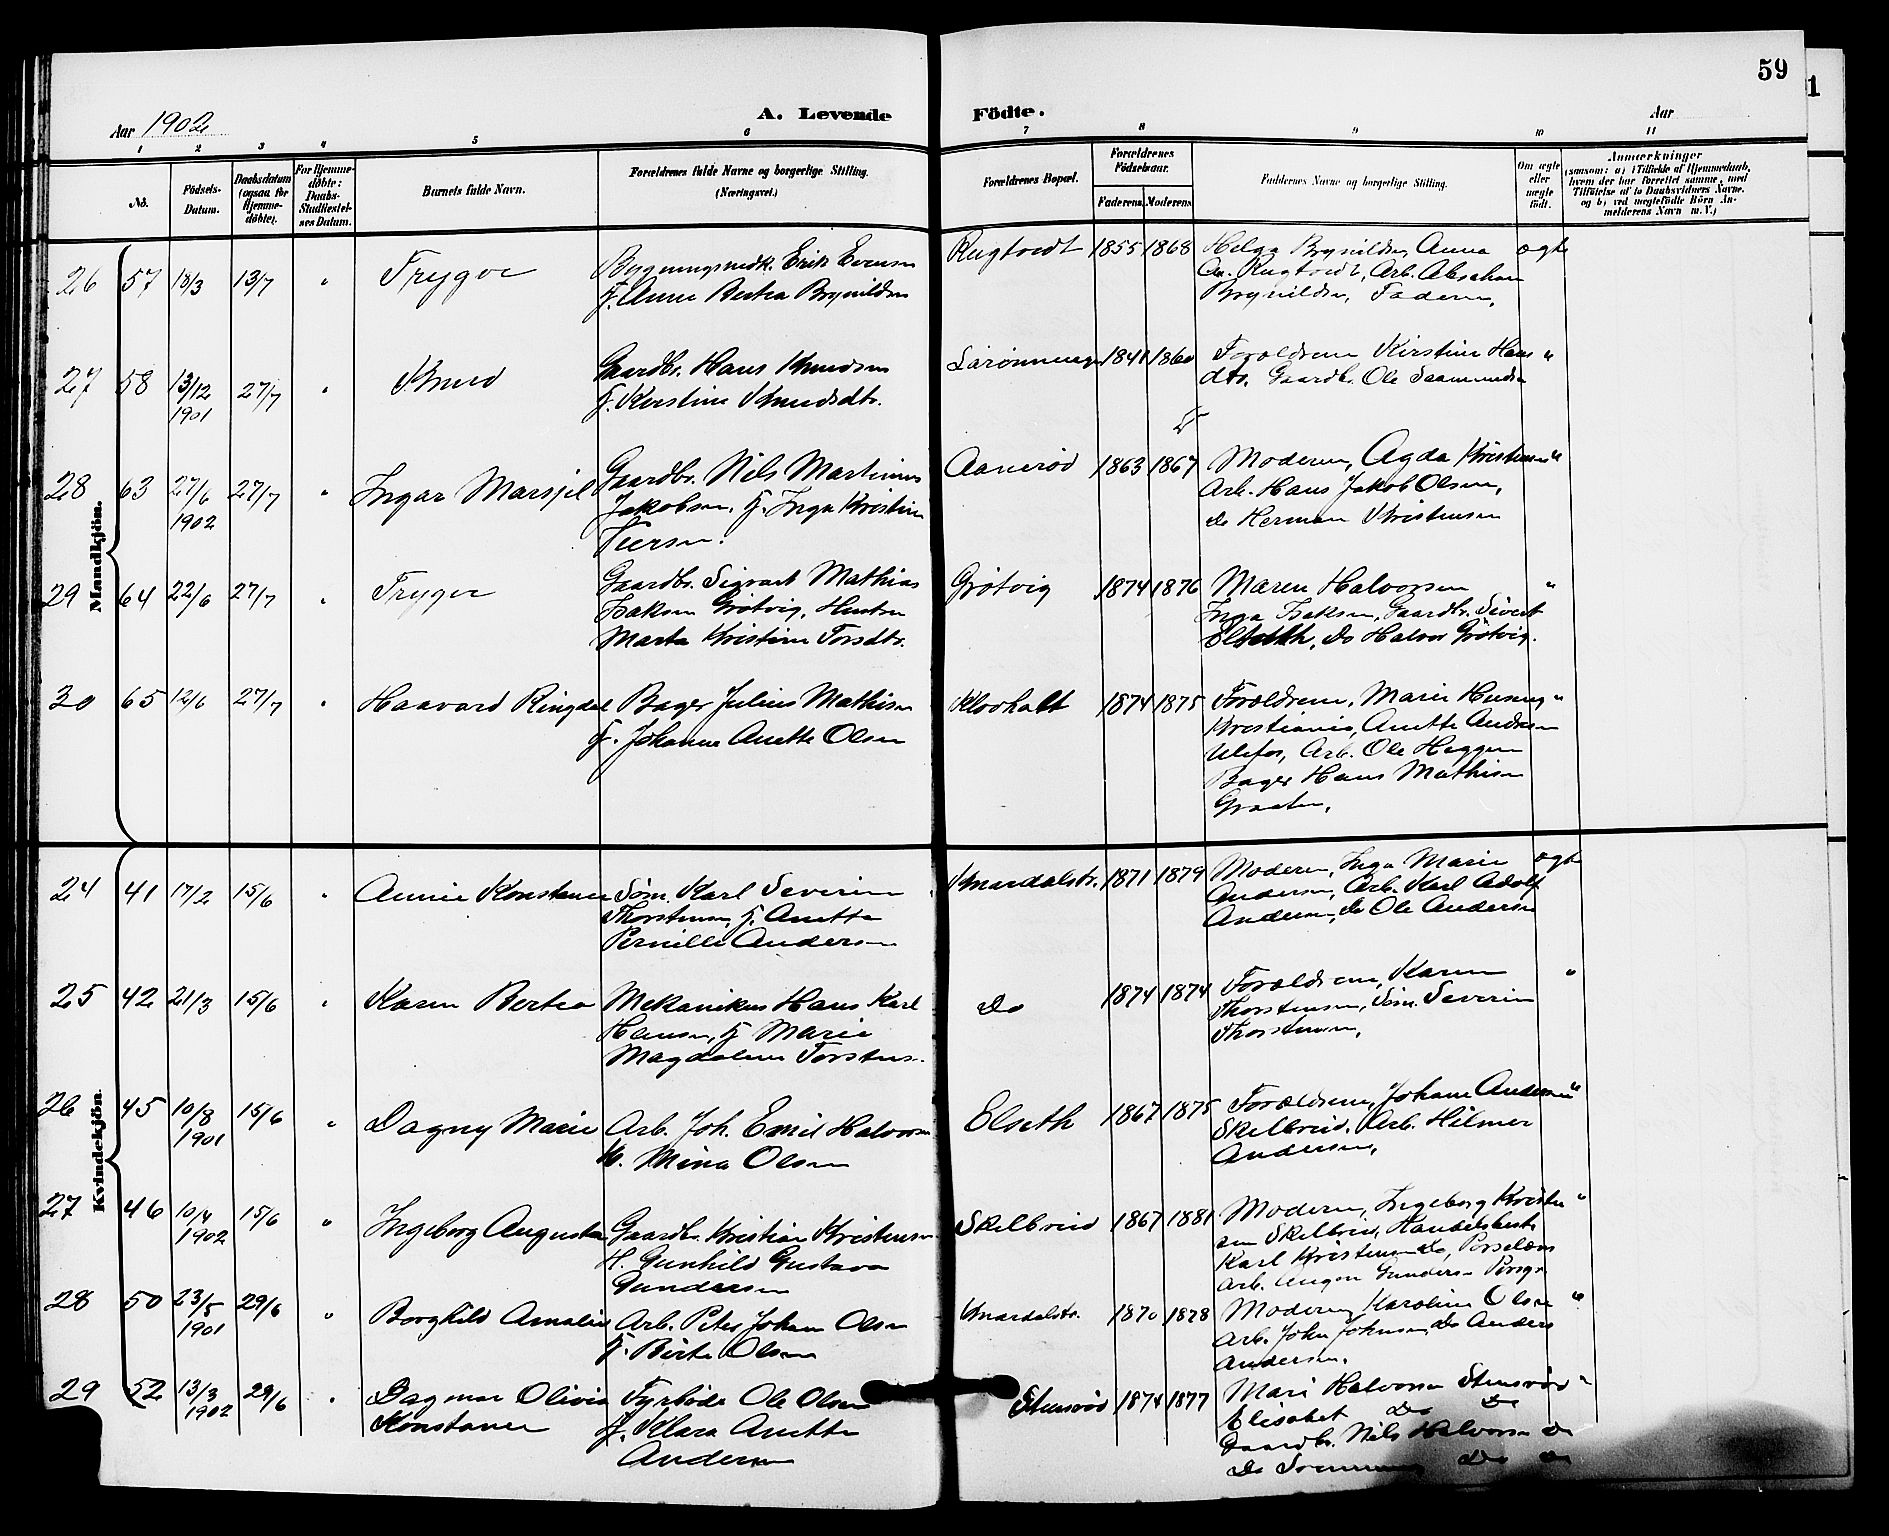 59
1
Aar 1902
A. Levende Födte.
Aar
1 2 3 4 5 6 7 8 9 10 11
No.
Födsels-Datum.
Daabsdatum (ogsaa for Hjemme-döbte).
For Hjemme-döbte: Daabs-Stadfæstel-ses Datum.
Barnets fulde Navn.
Forældrenes fulde Navne og borgerlige Stilling. (Næringsvei.)
Forældrenes Bopæl.
Forældrenes Födselsaar.
Faderens. Moderens.
Faddernes Navne og borgerlige Stilling.
Om ægte eller uægte födt.
Anmærkninger
(saasom: a) i Tilfælde af Hjemmedaab, hvem der har forrettet samme, med Tilföielse af to Daabsvidners Navne, og b) ved uægtefödte Börn An-melderens Navn m. V.)
Mandkjön.
26 57 18/3 13/7 " Trygve
Bygningssnedk. Erik Evensen
H. Anne Bertea Brynildsen
Rugtvedt 1855 1868
Helga Brynildsen, Anna
Rugtvedt, Arb. Abraham
Brynildsen, Faderen.
ægte
27 58 13/12 1901 27/7 " Knud
Gaardbr. Hans Knudsen
H. Kirstine Knudsdtr.
1841 1860
Forældrene Kirstine Hans
dtr. Gaardbr. Ole Saamundsen
"
28 63 27/6 1902 27/7 " Ingar Marsjel
Gaardbr. Nils Martinus
Jakobsen, H. Inga Kristine
Iversen.
Aanerød 1863 1867
Moderen, Agda Kristensen
Arb. Hans Jakob Olsen,
Do Herman Kristensen
"
29 64 22/6 27/7 " Trygve
Gaardbr. Sigvart Mathias
Isaksen Grøtvig, Hustru
Marta Kristine Torsdtr.
Grøtvig 1874 1876
Maren Halvorsen
Inga Isaksen, Gaardbr. Sivert
Elseth, Do Halvor Grøtvig.
"
30 65 12/6 27/7 " Haavard Ringdal
Bager Julius Mathisen
H. Johanne Anette Olsen
Klovholt 1874 1875
Forældrene, Marie
Kristiania, Anette Andersen
Ulefos, Arb. Ole Heggen
Bager Hans Mathisen
Graaten.
"
Kvindekjön.
24 41 17/2 15/6 " Annie Konstance
Søm. Karl Severin
Thorstensen, H. Anette
Pernille Andersen
Knardalstr. 1871 1879
Moderen, Inga Marie
Andersen, Arb. Karl Adolf
Andersen, Do Ole Andersen
ægte
25 42 21/3 15/6 " Karen Bertea
Mekanikus Hans Karl
Hansen, H. Marie
Magdalene Torstens.
Do 1874 1874
Forældrene, Karen
Thorstensen, Søm. Severin
Thorstensen,
"
26 45 10/8 1901 15/6 " Dagny Marie
Arb. Joh. Emil Halvorsen
H. Mina Olsen
Elseth 1867 1875
Forældrene, Johan Andersen
Skelbreid. Arb. Hilmer
Andersen,
"
27 46 10/4 1902 15/6 " Ingeborg Augusta
Gaardbr. Kristian Kristensen
H. Gunhild Gustava
Gundersen
Skelbreid 1867 1881
Moderen, Ingeborg Kristen
sen Skelbreid, Handelsbest.
Karl Kristensen Do, Porselæns
arb. Gundersen Porsgr.
"
28 50 23/5 1901 29/6 " Borghild Amalie
Arb. Peter Johan Olsen
H. Birte Olsen
Knardalstr. 1870 1878
Moderen, Karoline Olsen
Arb. John Johnsen, Do Anders
Andersen.
"
29 52 13/3 1902 29/6 " Dagmar Olivia
Konstance
Fyrbøder Ole Olsen
H. Klara Anette
Andersen
Stensrød 1874 1877
Mari Halvorsen Stensrød
Elisabet Do Do
Gaardbr. Nils Halvorsen Do
Do Do Do
"